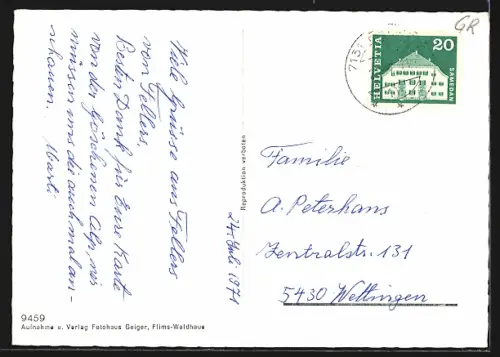 Viele Grüsse aus Fellers
von Fellers.
Besten Dank für Eure Karte
von der Göschenen Alp, wir
müssen uns die auch mal an-
schauen. Marti
24. Juli 1971
Reproduktion verboten
9459
Aufnahme u. Verlag Fotohaus Geiger, Flims-Waldhaus
GR
713
20
HELVETIA
SAMEDAN
Familie
A. Peterhans
Zentralstr. 131
5430 Wettingen